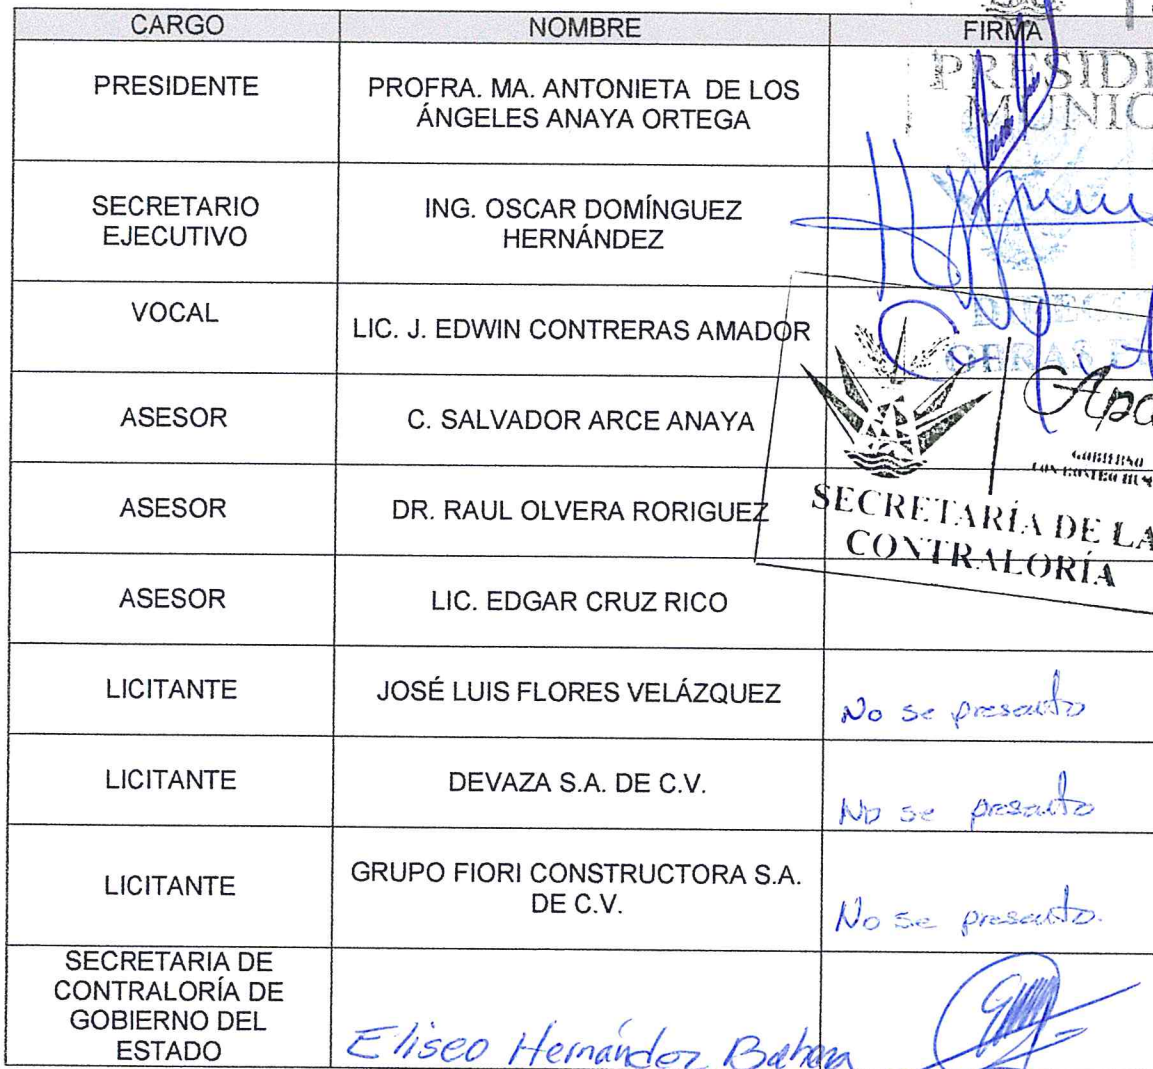 CARGO NOMBRE FIRMA
PRESIDENTE
PROFRA. MA. ANTONIETA DE LOS
ÁNGELES ANAYA ORTEGA
SECRETARIO
EJECUTIVO
ING. OSCAR DOMÍNGUEZ
HERNÁNDEZ
VOCAL
LIC. J. EDWIN CONTRERAS AMADOR
ASESOR
C. SALVADOR ARCE ANAYA
ASESOR
DR. RAUL OLVERA RORIGUEZ
SECRETARÍA DE LA
CONTRALORÍA
ASESOR
LIC. EDGAR CRUZ RICO
LICITANTE
JOSÉ LUIS FLORES VELÁZQUEZ
No se presento
LICITANTE
DEVAZA S.A. DE C.V.
No se presento
LICITANTE
GRUPO FIORI CONSTRUCTORA S.A.
DE C.V.
No se presento.
SECRETARIA DE
CONTRALORÍA DE
GOBIERNO DEL
ESTADO
Eliseo Hernández